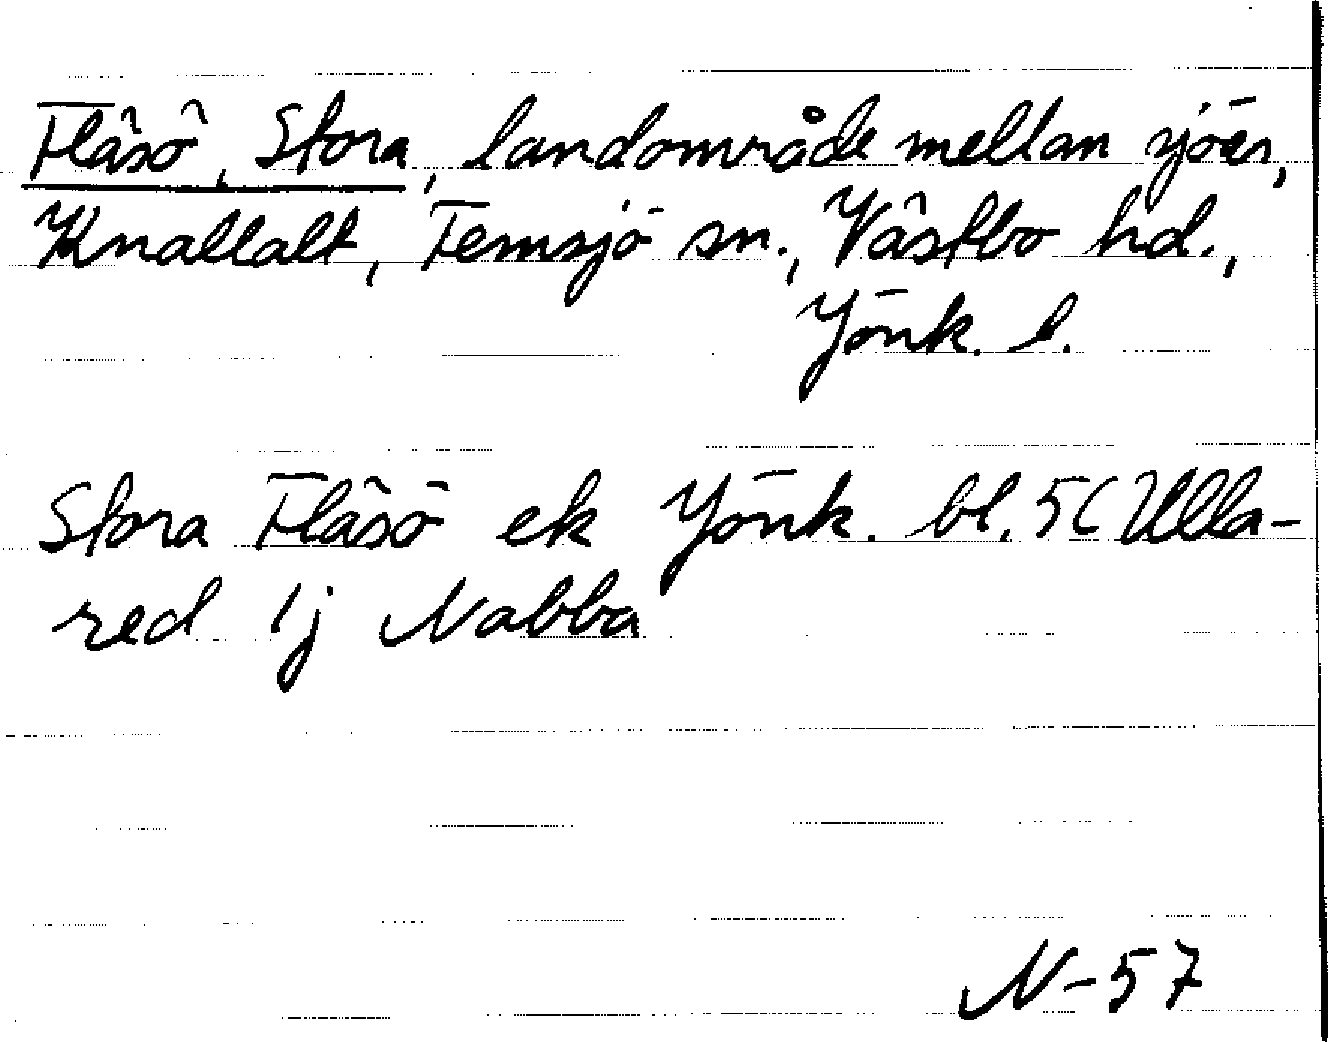 Fläsö, Stora, landområde mellan sjöar,
Knallalt, Femsjö sn., Västbo hd.,
Jönk. l.
Stora Fläsö ek Jönk. bl. 5C Ulla-
red 1j Nabba
N-57